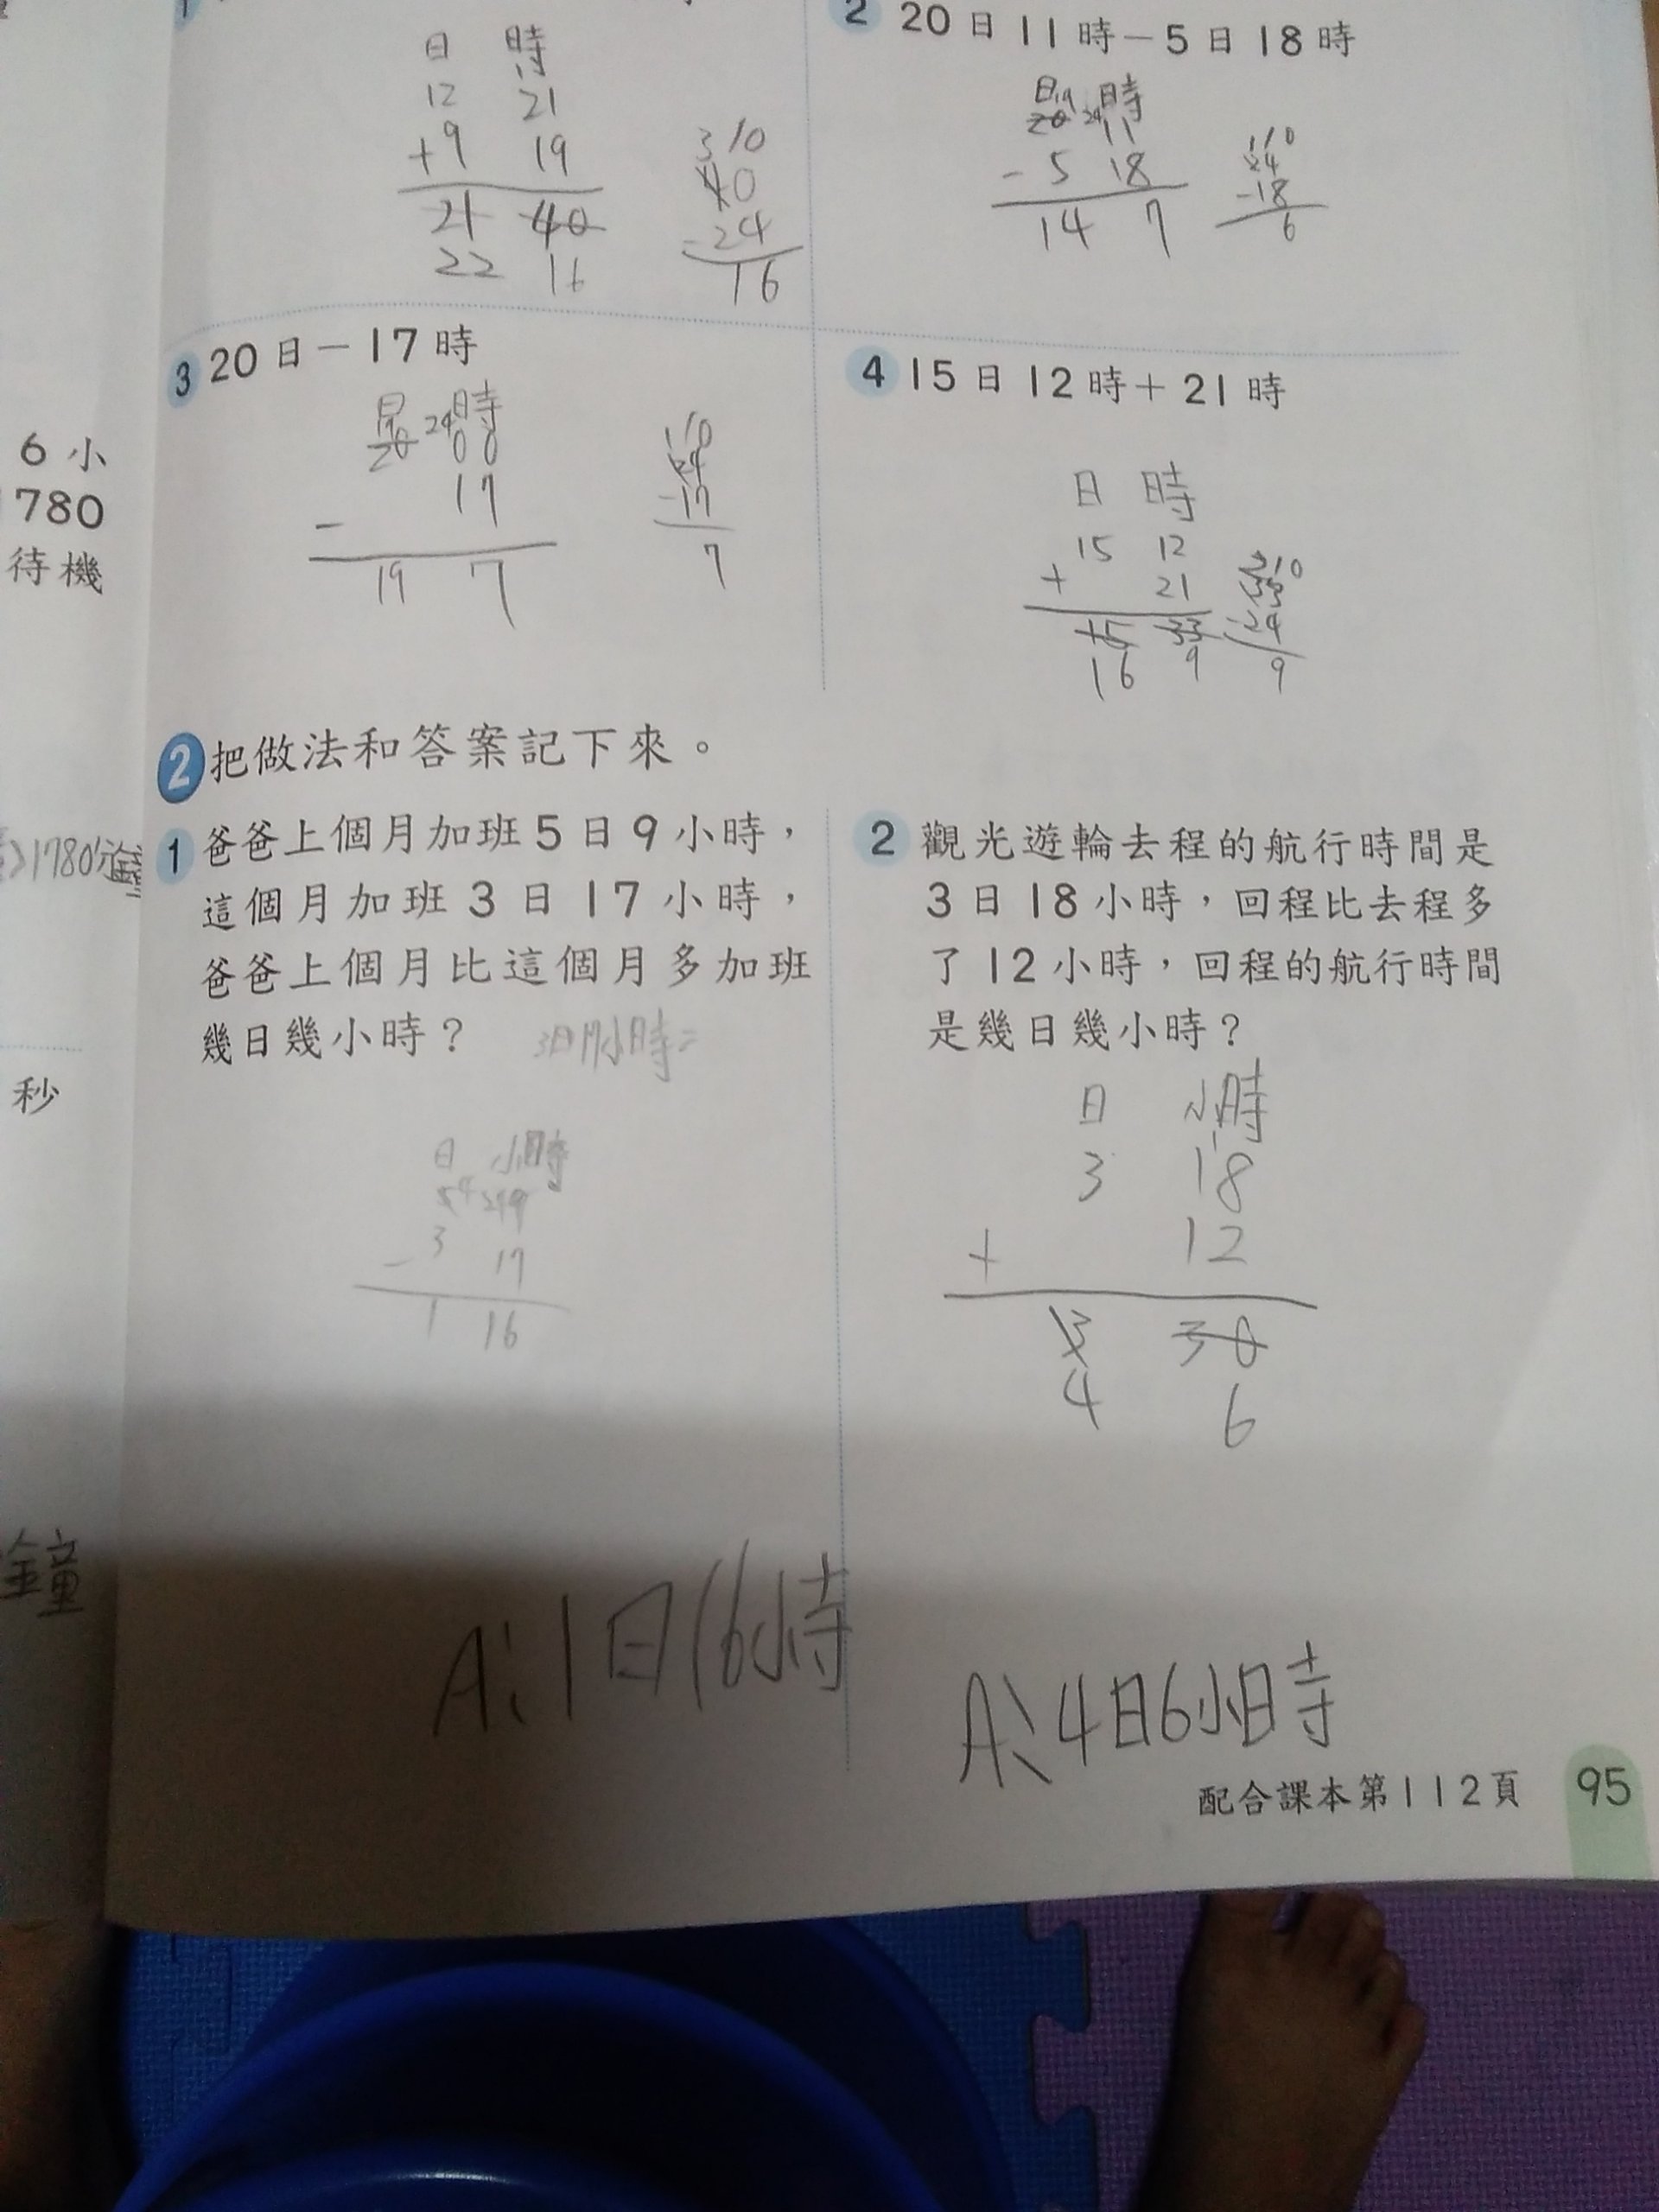 日 時
12 21
+9 19
21 40
22 16
3 10
40
-24
16
2 20日11時－5日18時
日 時
19 24
20 11
- 5 18
14 7
1 10
24
-18
6
3 20日－17時
日 時
19 24
20 00
17
-
19 7
1 10
24
-17
7
4 15日12時＋21時
日 時
15 12
+ 21
15 33
16 9
2 10
33
-24
9
6小
780
待機
1780分鐘
秒
鐘
2 把做法和答案記下來。
1 爸爸上個月加班5日9小時，
這個月加班3日17小時，
爸爸上個月比這個月多加班
幾日幾小時？
3日17小時=
日 小時
5 4 24 9
- 3 17
1 16
A:1日16小時
2 觀光遊輪去程的航行時間是
3日18小時，回程比去程多
了12小時，回程的航行時間
是幾日幾小時？
日 小時
3 18
+ 12
3 30
4 6
A:4日6小時
配合課本第112頁 95